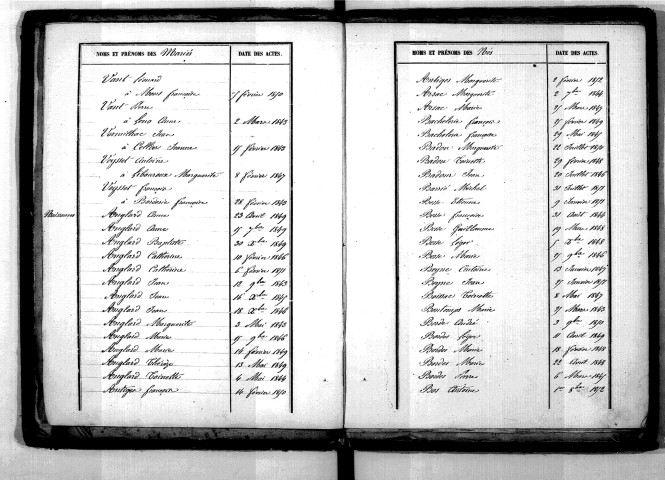 NOMS ET PRÉNOMS DES Mariés DATE DES ACTES.
Vanet Léonard
à Mons françoise 7 février 1850
Vanet Pierre
à Anne 2 Mars 1843
Vermilhac Jean
à Jeanne 17 février 1843
Veysset Antoine
à Marguerite 8 février 1847
Veysset françois
à françoise 28 février 1843
Naissances Anglard Anne 23 Août 1849
Anglard Anne 17 7bre 1849
Anglard Baptiste 20 Xbre 1849
Anglard Catherine 10 février 1846
Anglard Catherine 6 février 1851
Anglard Jean 12 9bre 1843
Anglard Jean 16 Xbre 1845
Anglard Jean 18 Xbre 1846
Anglard Marguerite 3 Mai 1843
Anglard Marie 17 9bre 1846
Anglard Marie 14 février 1849
Anglard Thérèze 13 Mai 1849
Anglard Toinette 4 Mai 1844
Antignes françoise 14 février 1850
MOMS ET PRÉNOMS DES Nés DATE DES ACTES.
Antignes Marguerite 2 février 1852
Arsac Marguerite 2 7bre 1844
Arsac Marie 27 Mars 1843
Bachelerie françois 27 février 1849
Bachelerie françoise 29 Mai 1845
Badon Marguerite 22 Juillet 1850
Badon Toinette 29 février 1848
Jean 20 Juillet 1846
Barrié Michel 31 Juillet 1851
Basse Etienne 9 Janvier 1851
Basse françoise 31 Août 1844
Basse Guillaume 19 Mars 1848
Basse Léger 5 Xbre 1848
Basse Marie 27 9bre 1846
Beyne Antoine 13 Janvier 1845
Beyne Jean 27 Janvier 1851
Toinette 8 Mai 1847
Marie 27 Mars 1843
Bordes André 3 9bre 1850
Bordes Léger 11 Août 1849
Bordes Marie 18 février 1850
Bordes Marie 22 Août 1848
Bordes Pierre 6 Mars 1845
Bos Antoine 1er 8bre 1852